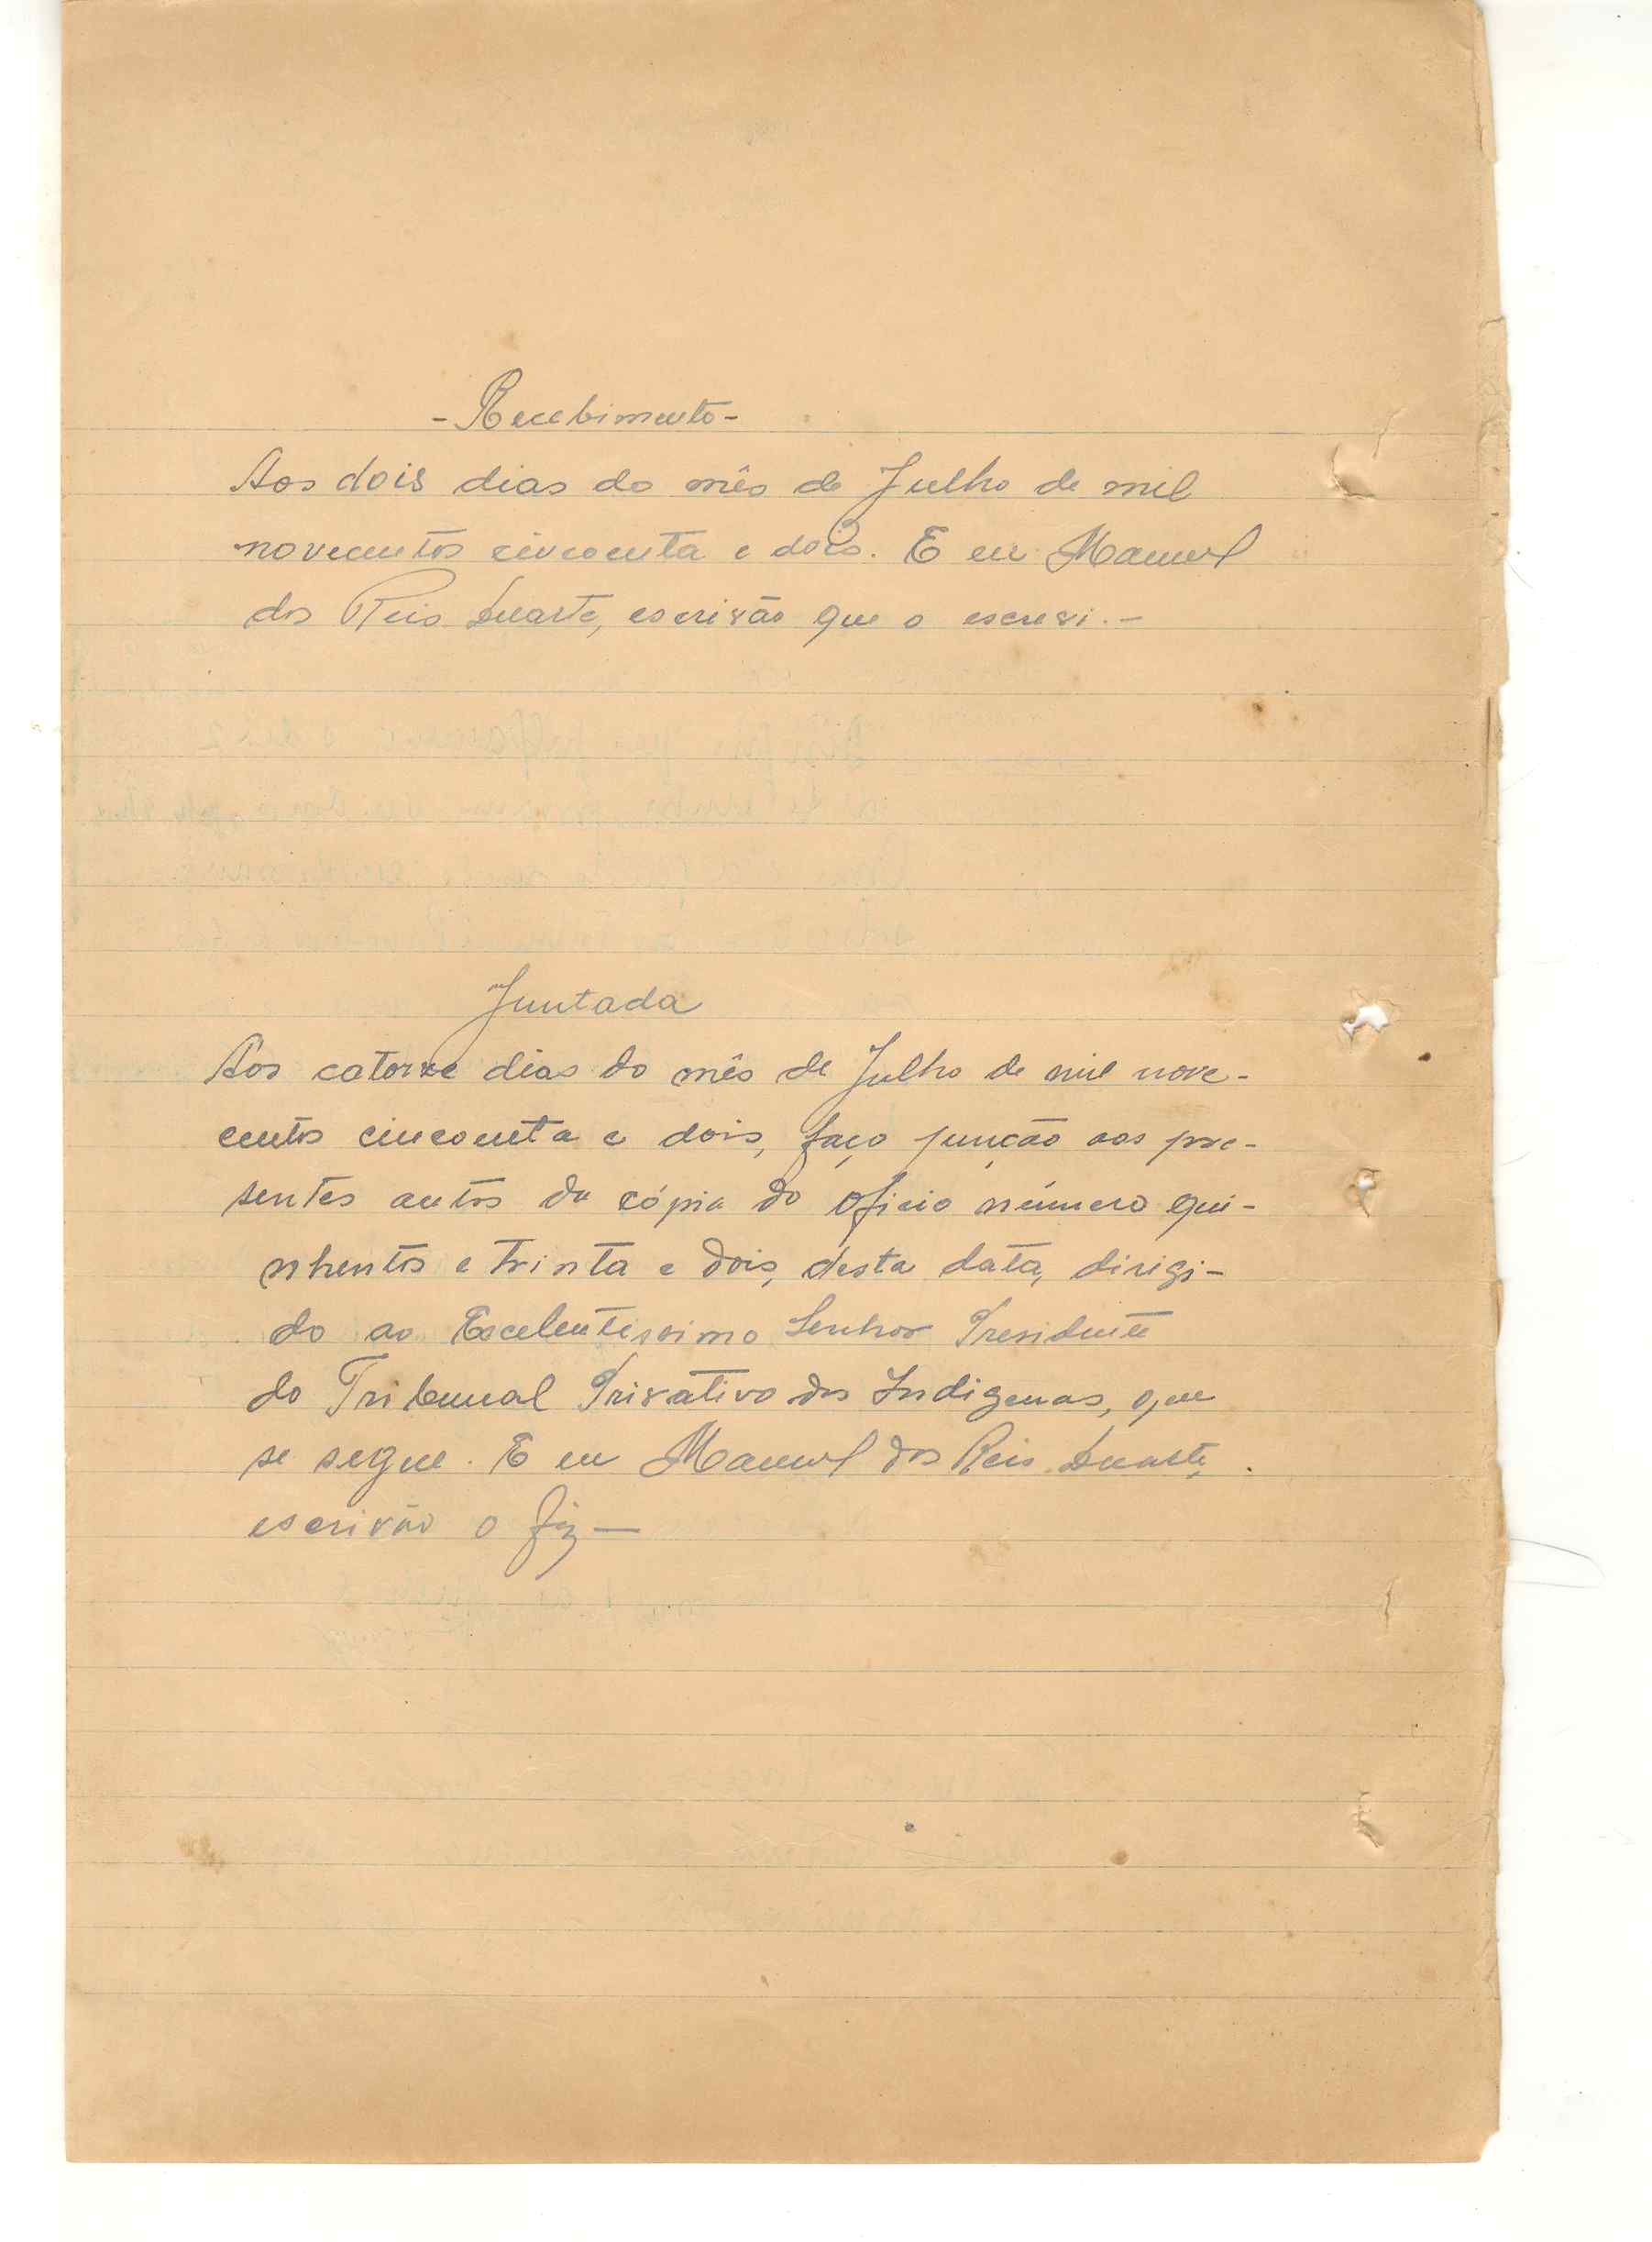 - Recebimento -
Aos dois dias do mês de Julho de mil
novecentos cincoenta e dois. E eu Manuel
dos Reis Duarte, escrivão que o escrevi. -
Juntada
Aos catorze dias do mês de Julho de mil nove-
centos cincoenta e dois, faço junção aos pre-
sentes autos da cópia do ofício número qui-
nhentos e trinta e dois, desta data, dirigi-
do ao Excelentissimo Senhor Presidente
do Tribunal Privativo dos Indigenas, que
se segue. E eu Manuel dos Reis Duarte,
escrivão o fiz —